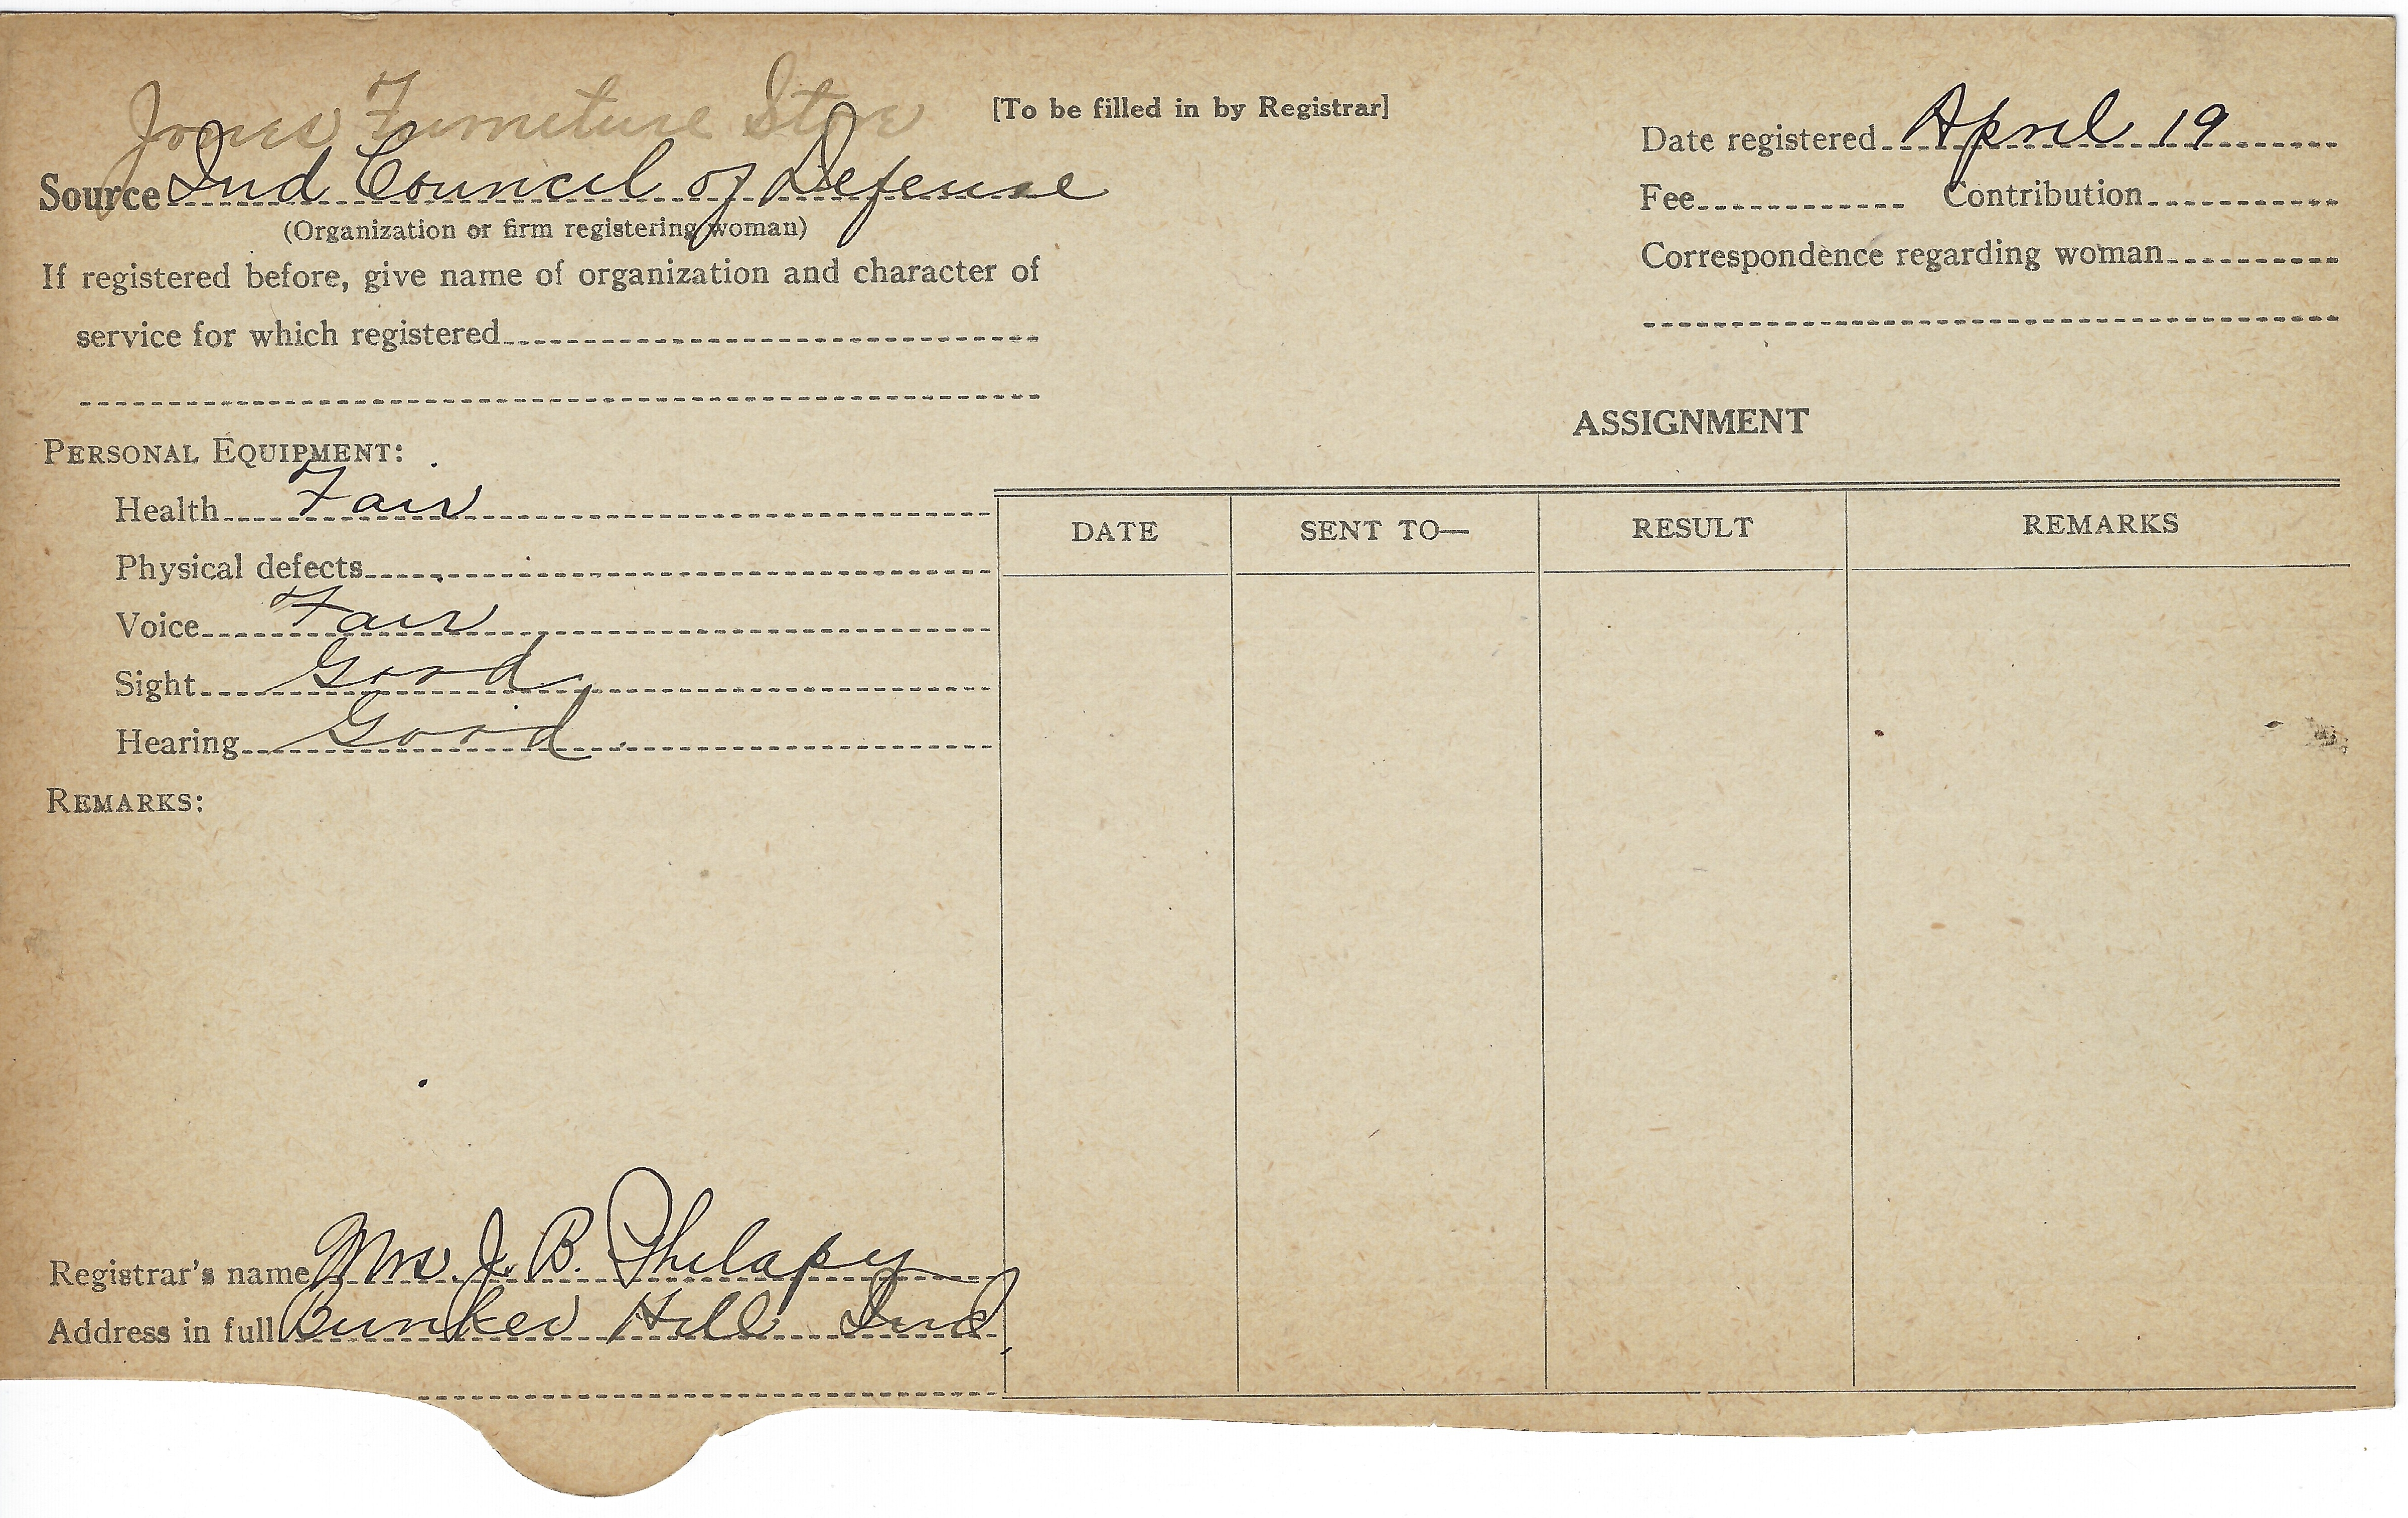 Jones Furniture Store
[To be filled in by Registrar]
Source Ind Council of Defense
(Organization or firm registering woman)
If registered before, give name of organization and character of
service for which registered
Date registered April 19
Fee Contribution
Correspondence regarding woman
PERSONAL EQUIPMENT:
Health Fair
Physical defects
Voice Fair
Sight Good
Hearing Good
REMARKS:
Registrar's name Mrs J. B. Philapy
Address in full Bunker Hill Ind.
ASSIGNMENT
DATE SENT TO— RESULT REMARKS